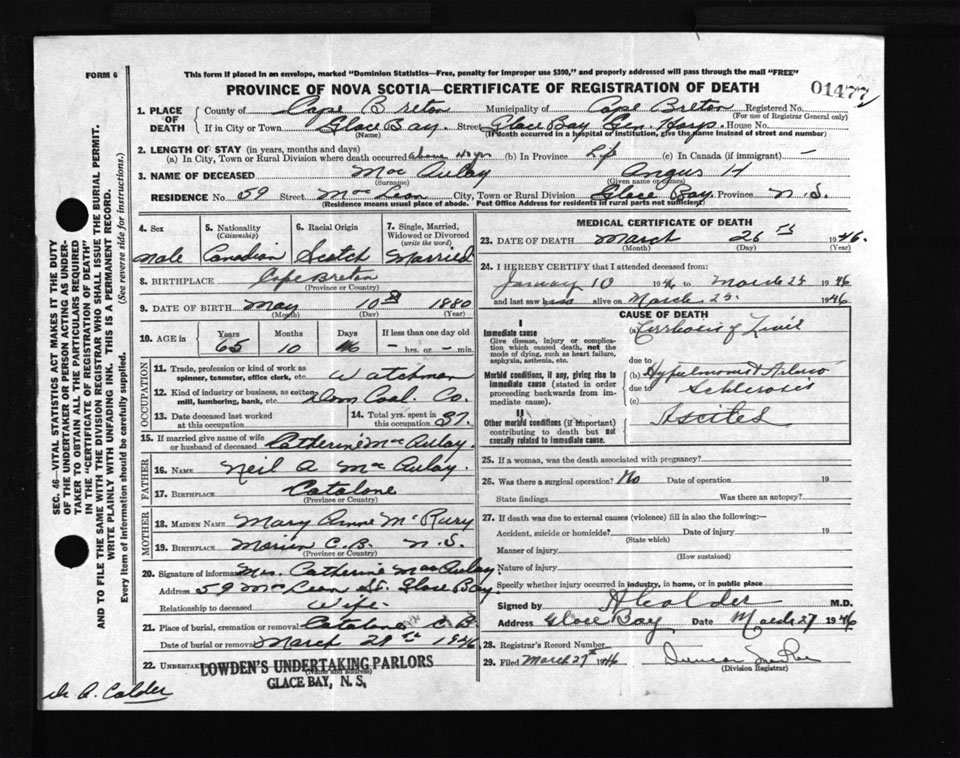 FORM 6
This form if placed in an envelope, marked "Dominion Statistics—Free, penalty for improper use $300," and properly addressed will pass through the mail "FREE"
PROVINCE OF NOVA SCOTIA—CERTIFICATE OF REGISTRATION OF DEATH
01477
1. PLACE OF DEATH
County of Cape Breton Municipality of Cape Breton Registered No.
(For use of Registrar General only)
If in City or Town Glace Bay. Street Glace Bay Gen. Hosp. House No.
(Name) (If death occurred in a hospital or institution, give the name instead of street and number)
2. LENGTH OF STAY (in years, months and days)
(a) In City, Town or Rural Division where death occurred (b) In Province Life (c) In Canada (if immigrant) —
3. NAME OF DECEASED Mac Aulay Angus H
(Surname) (Given name or names)
RESIDENCE No. 59 Street Mac Lean City, Town or Rural Division Glace Bay. Province N.S.
(Residence means usual place of abode. Post Office Address for residents in rural parts not sufficient)
4. Sex 5. Nationality (Citizenship) 6. Racial Origin 7. Single, Married, Widowed or Divorced (write the word)
Male Canadian Scotch Married
8. BIRTHPLACE Cape Breton
(Province or Country)
9. DATE OF BIRTH May 10th 1880
(Month) (Day) (Year)
10. AGE in Years Months Days If less than one day old
65 10 16 — hrs. or — min.
OCCUPATION
11. Trade, profession or kind of work as spinner, teamster, office clerk, etc. Watchman
12. Kind of industry or business, as cotton mill, lumbering, bank, etc. Dom Coal. Co.
13. Date deceased last worked at this occupation
14. Total yrs. spent in this occupation 37.
15. If married give name of wife or husband of deceased Catherine Mac Aulay.
FATHER
16. NAME Neil A Mac Aulay.
17. BIRTHPLACE Catalone
(Province or Country)
MOTHER
18. MAIDEN NAME Mary Anne McRury
19. BIRTHPLACE Marion C.B. N.S.
(Province or Country)
20. Signature of informant Mrs. Catherine MacAulay
Address 59 Mac Lean St. Glace Bay.
Relationship to deceased Wife.
21. Place of burial, cremation or removal Catalone C.B.
Date of burial or removal March 29th 1946
22. Undertaker LOWDEN'S UNDERTAKING PARLORS
GLACE BAY, N. S.
Dr A. Calder
MEDICAL CERTIFICATE OF DEATH
23. DATE OF DEATH March 26th 1946.
(Month) (Day) (Year)
24. I HEREBY CERTIFY that I attended deceased from:
January 10 1946 to March 25 1946
and last saw alive on March 25. 1946
CAUSE OF DEATH
I
Immediate cause
Give disease, injury or complication which caused death, not the mode of dying, such as heart failure, asphyxia, asthenia, etc.
(a) Cirrhosis of
due to
Morbid conditions, if any, giving rise to immediate cause (stated in order proceeding backwards from immediate cause).
(b)
due to Sclerosis
(c)
II
Other morbid conditions (if important) contributing to death but not causally related to immediate cause.
Ascites
25. If a woman, was the death associated with pregnancy?
26. Was there a surgical operation? No Date of operation 19
State findings Was there an autopsy?
27. If death was due to external causes (violence) fill in also the following:—
Accident, suicide or homicide? Date of injury 19
(State which)
Manner of injury
(How sustained)
Nature of injury
Specify whether injury occurred in industry, in home, or in public place
Signed by A Calder M.D.
Address Glace Bay Date March 27 1946
28. Registrar's Record Number
29. Filed March 27th 1946
(Division Registrar)
SEC. 46—VITAL STATISTICS ACT MAKES IT THE DUTY
OF THE UNDERTAKER OR PERSON ACTING AS UNDER-
TAKER TO OBTAIN ALL THE PARTICULARS REQUIRED
IN THE "CERTIFICATE OF REGISTRATION OF DEATH"
AND TO FILE THE SAME WITH THE DIVISION REGISTRAR WHO SHALL ISSUE THE BURIAL PERMIT.
WRITE PLAINLY WITH UNFADING INK. THIS IS A PERMANENT RECORD.
Every item of information should be carefully supplied. (See reverse side for instructions.)